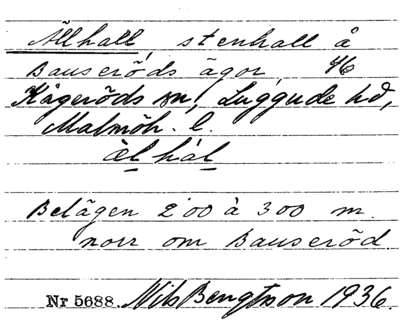 Ällhall, stenhall å
Bauseröds ägor, 46
Kågeröds sn, Luggude hd,
Malmöh. l.
äl hál
Belägen 200 à 300 m.
norr om Bauseröd.
Nr 5688. Nils Bengtsson 1936.